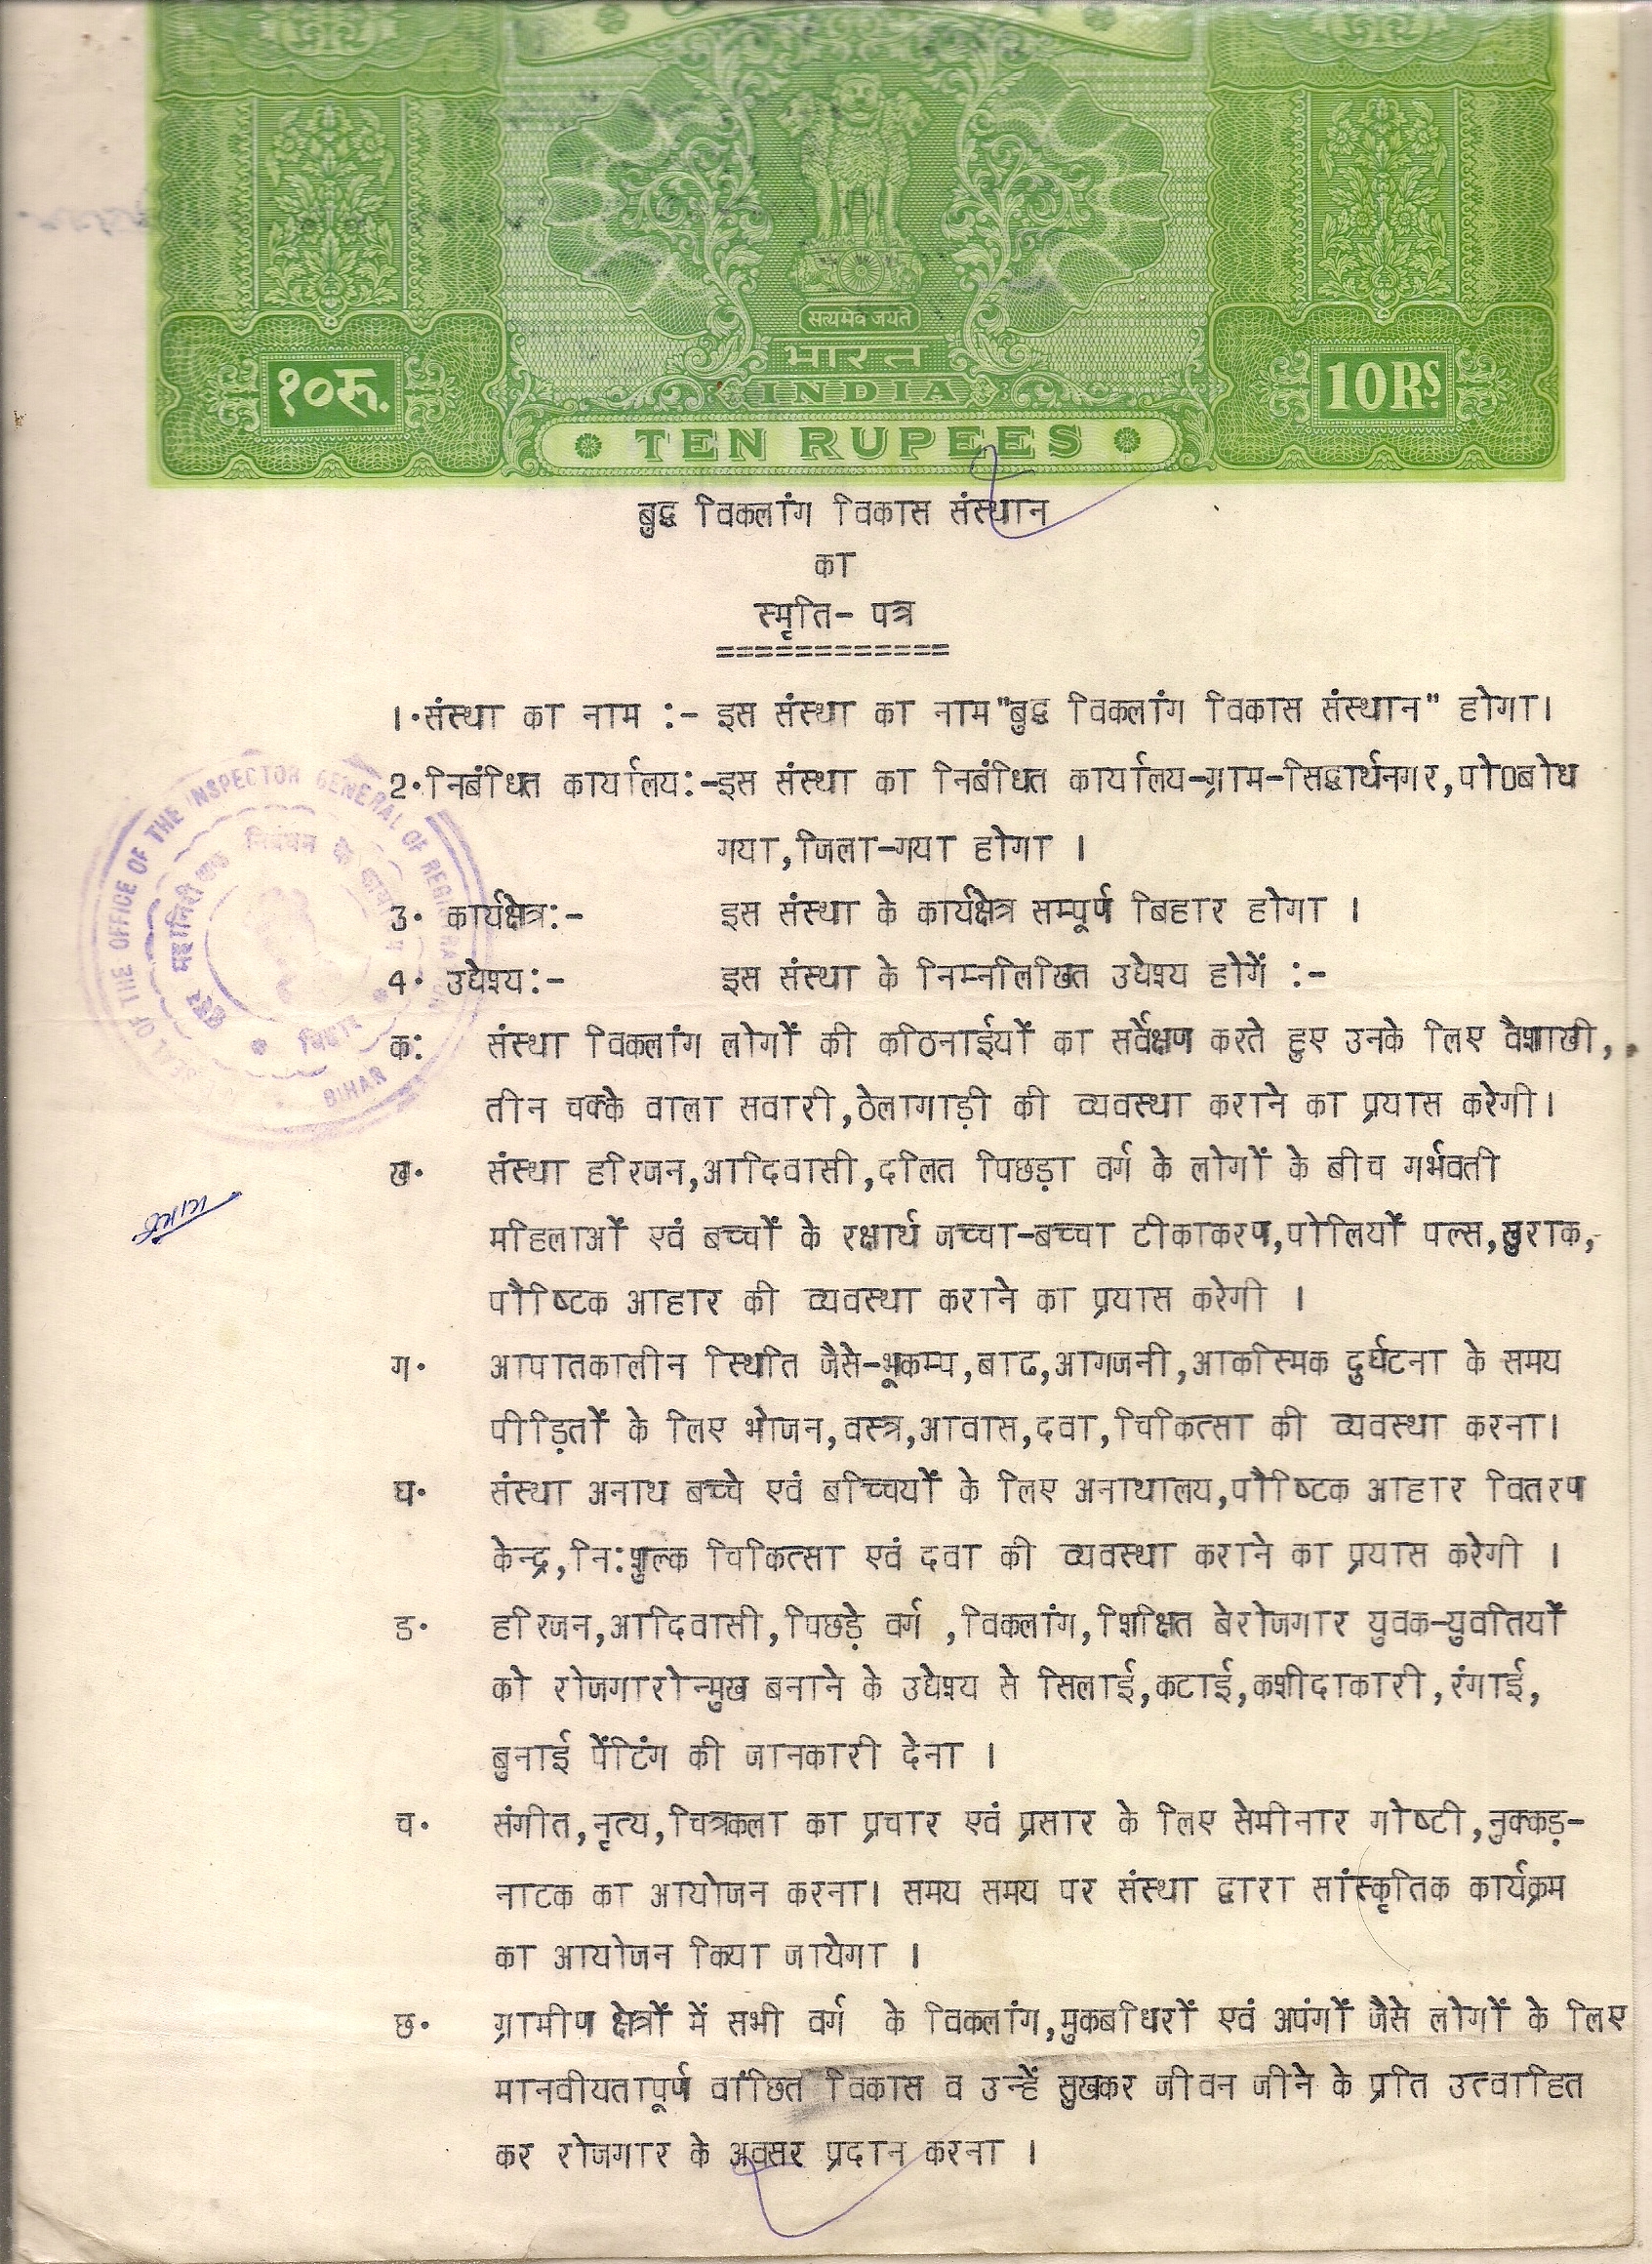 सत्यमेव जयते
भारत
INDIA
१०रू.
10RS.
TEN RUPEES
बुद्ध विकलांग विकास संस्थान
का
स्मृति- पत्र
============
1. संस्था का नाम :- इस संस्था का नाम "बुद्ध विकलांग विकास संस्थान" होगा।
2. निबंधित कार्यालय:- इस संस्था का निबंधित कार्यालय-ग्राम-सिद्धार्थनगर,पो0बोध
गया,जिला-गया होगा ।
3. कार्यक्षेत्र:- इस संस्था के कार्यक्षेत्र सम्पूर्ण बिहार होगा ।
4. उद्येश्य:- इस संस्था के निम्नलिखित उद्येश्य होगें :-
क: संस्था विकलांग लोगों की कठिनाईयों का सर्वेक्षण करते हुए उनके लिए वैशाखी,
तीन चक्के वाला सवारी,ठेलागाड़ी की व्यवस्था कराने का प्रयास करेगी।
ख. संस्था हरिजन,आदिवासी,दलित पिछड़ा वर्ग के लोगों के बीच गर्भवती
महिलाओं एवं बच्चों के रक्षार्थ जच्चा-बच्चा टीकाकरण,पोलियों पल्स,खुराक,
पौष्टिक आहार की व्यवस्था कराने का प्रयास करेगी ।
ग. आपातकालीन स्थिति जैसे-भूकम्प,बाढ,आगजनी,आकस्मिक दुर्घटना के समय
पीड़ितों के लिए भोजन,वस्त्र,आवास,दवा,चिकित्सा की व्यवस्था करना।
घ. संस्था अनाथ बच्चे एवं बच्चियों के लिए अनाथालय,पौष्टिक आहार वितरण
केन्द्र,नि:शुल्क चिकित्सा एवं दवा की व्यवस्था कराने का प्रयास करेगी ।
ड. हरिजन,आदिवासी,पिछड़े वर्ग ,विकलांग,शिक्षित बेरोजगार युवक-युवतियों
को रोजगारोन्मुख बनाने के उद्येश्य से सिलाई,कटाई,कशीदाकारी,रंगाई,
बुनाई पेंटिंग की जानकारी देना ।
च. संगीत,नृत्य,चित्रकला का प्रचार एवं प्रसार के लिए सेमीनार गोष्टी,नुक्कड़-
नाटक का आयोजन करना। समय समय पर संस्था द्वारा सांस्कृतिक कार्यक्रम
का आयोजन किया जायेगा ।
छ. ग्रामीण क्षेत्रों में सभी वर्ग के विकलांग,मुकबधिरों एवं अपंगों जैसे लोगों के लिए
मानवीयतापूर्ण वांछित विकास व उन्हें सुखकर जीवन जीने के प्रति उत्वाहित
कर रोजगार के अवसर प्रदान करना ।
SEAL OF THE OFFICE OF THE INSPECTOR GENERAL OF REGISTRATION
BIHAR
बिहार